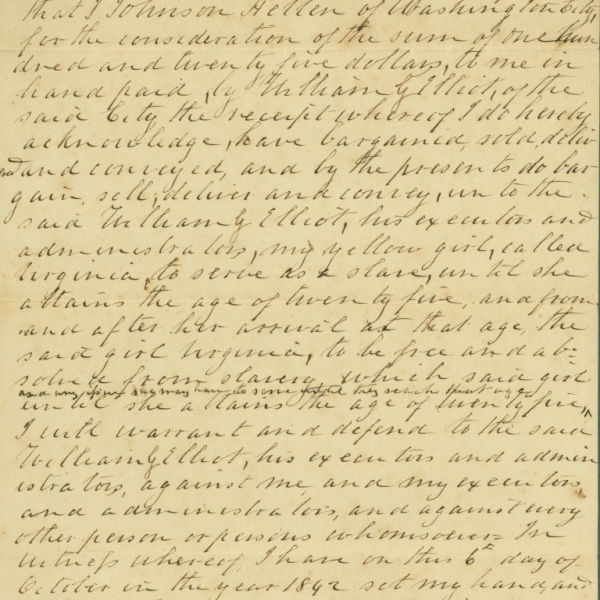 that I Johnson Hellen of Washington City,
for the consideration of the sum of one hun
dred and twenty five dollars, to me in
hand paid, by William G Elliot, of the
said City the receipt whereof I do hereby
acknowledge, have bargained, sold, deliv
ered and conveyed, and by the presents do bar
gain, sell, deliver and convey, un to the
said William G Elliot, his executors and
administrators, my yellow girl, called
Virginia, to serve as a slave, until she
attains the age of twenty five, and from
and after her arrival at that age, the
said girl Virginia, to be free and ab=
solved from slavery, which said girl
and any issue she may have to serve until they reach that age
until she attains the age of twenty five,
I will warrant and defend to the said
William G Elliot, his executors and admin
istrators, against me and my executors,
and administrators, and against every
other person or persons whomsoever= In
witness whereof I have on this 6th day of
October in the year 1842 set my hand, and